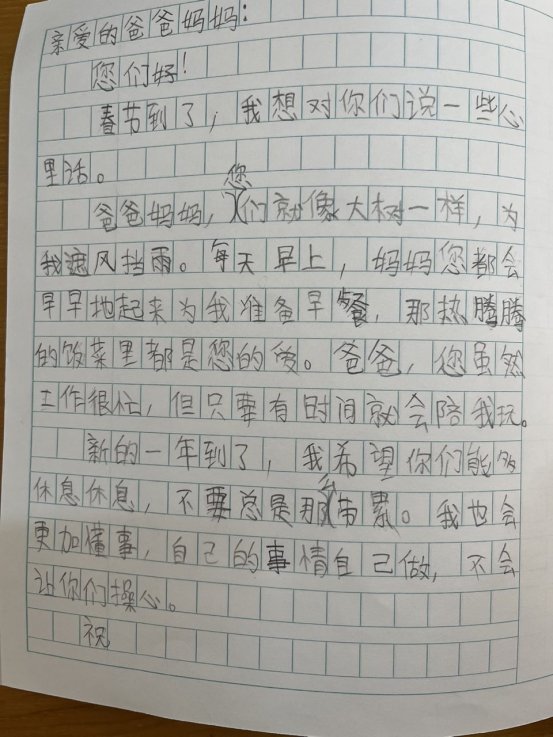 亲爱的爸爸妈妈：
您们好！
春节到了，我想对你们说一些心
里话。
爸爸妈妈，您们就像大树一样，为
我遮风挡雨。每天早上，妈妈您都会
早早地起来为我准备早餐，那热腾腾
的饭菜里都是您的爱。爸爸，您虽然
工作很忙，但只要有时间就会陪我玩。
新的一年到了，我希望你们能多
休息休息，不要总是那么劳累。我也会
更加懂事，自己的事情自己做，不会
让你们操心。
祝